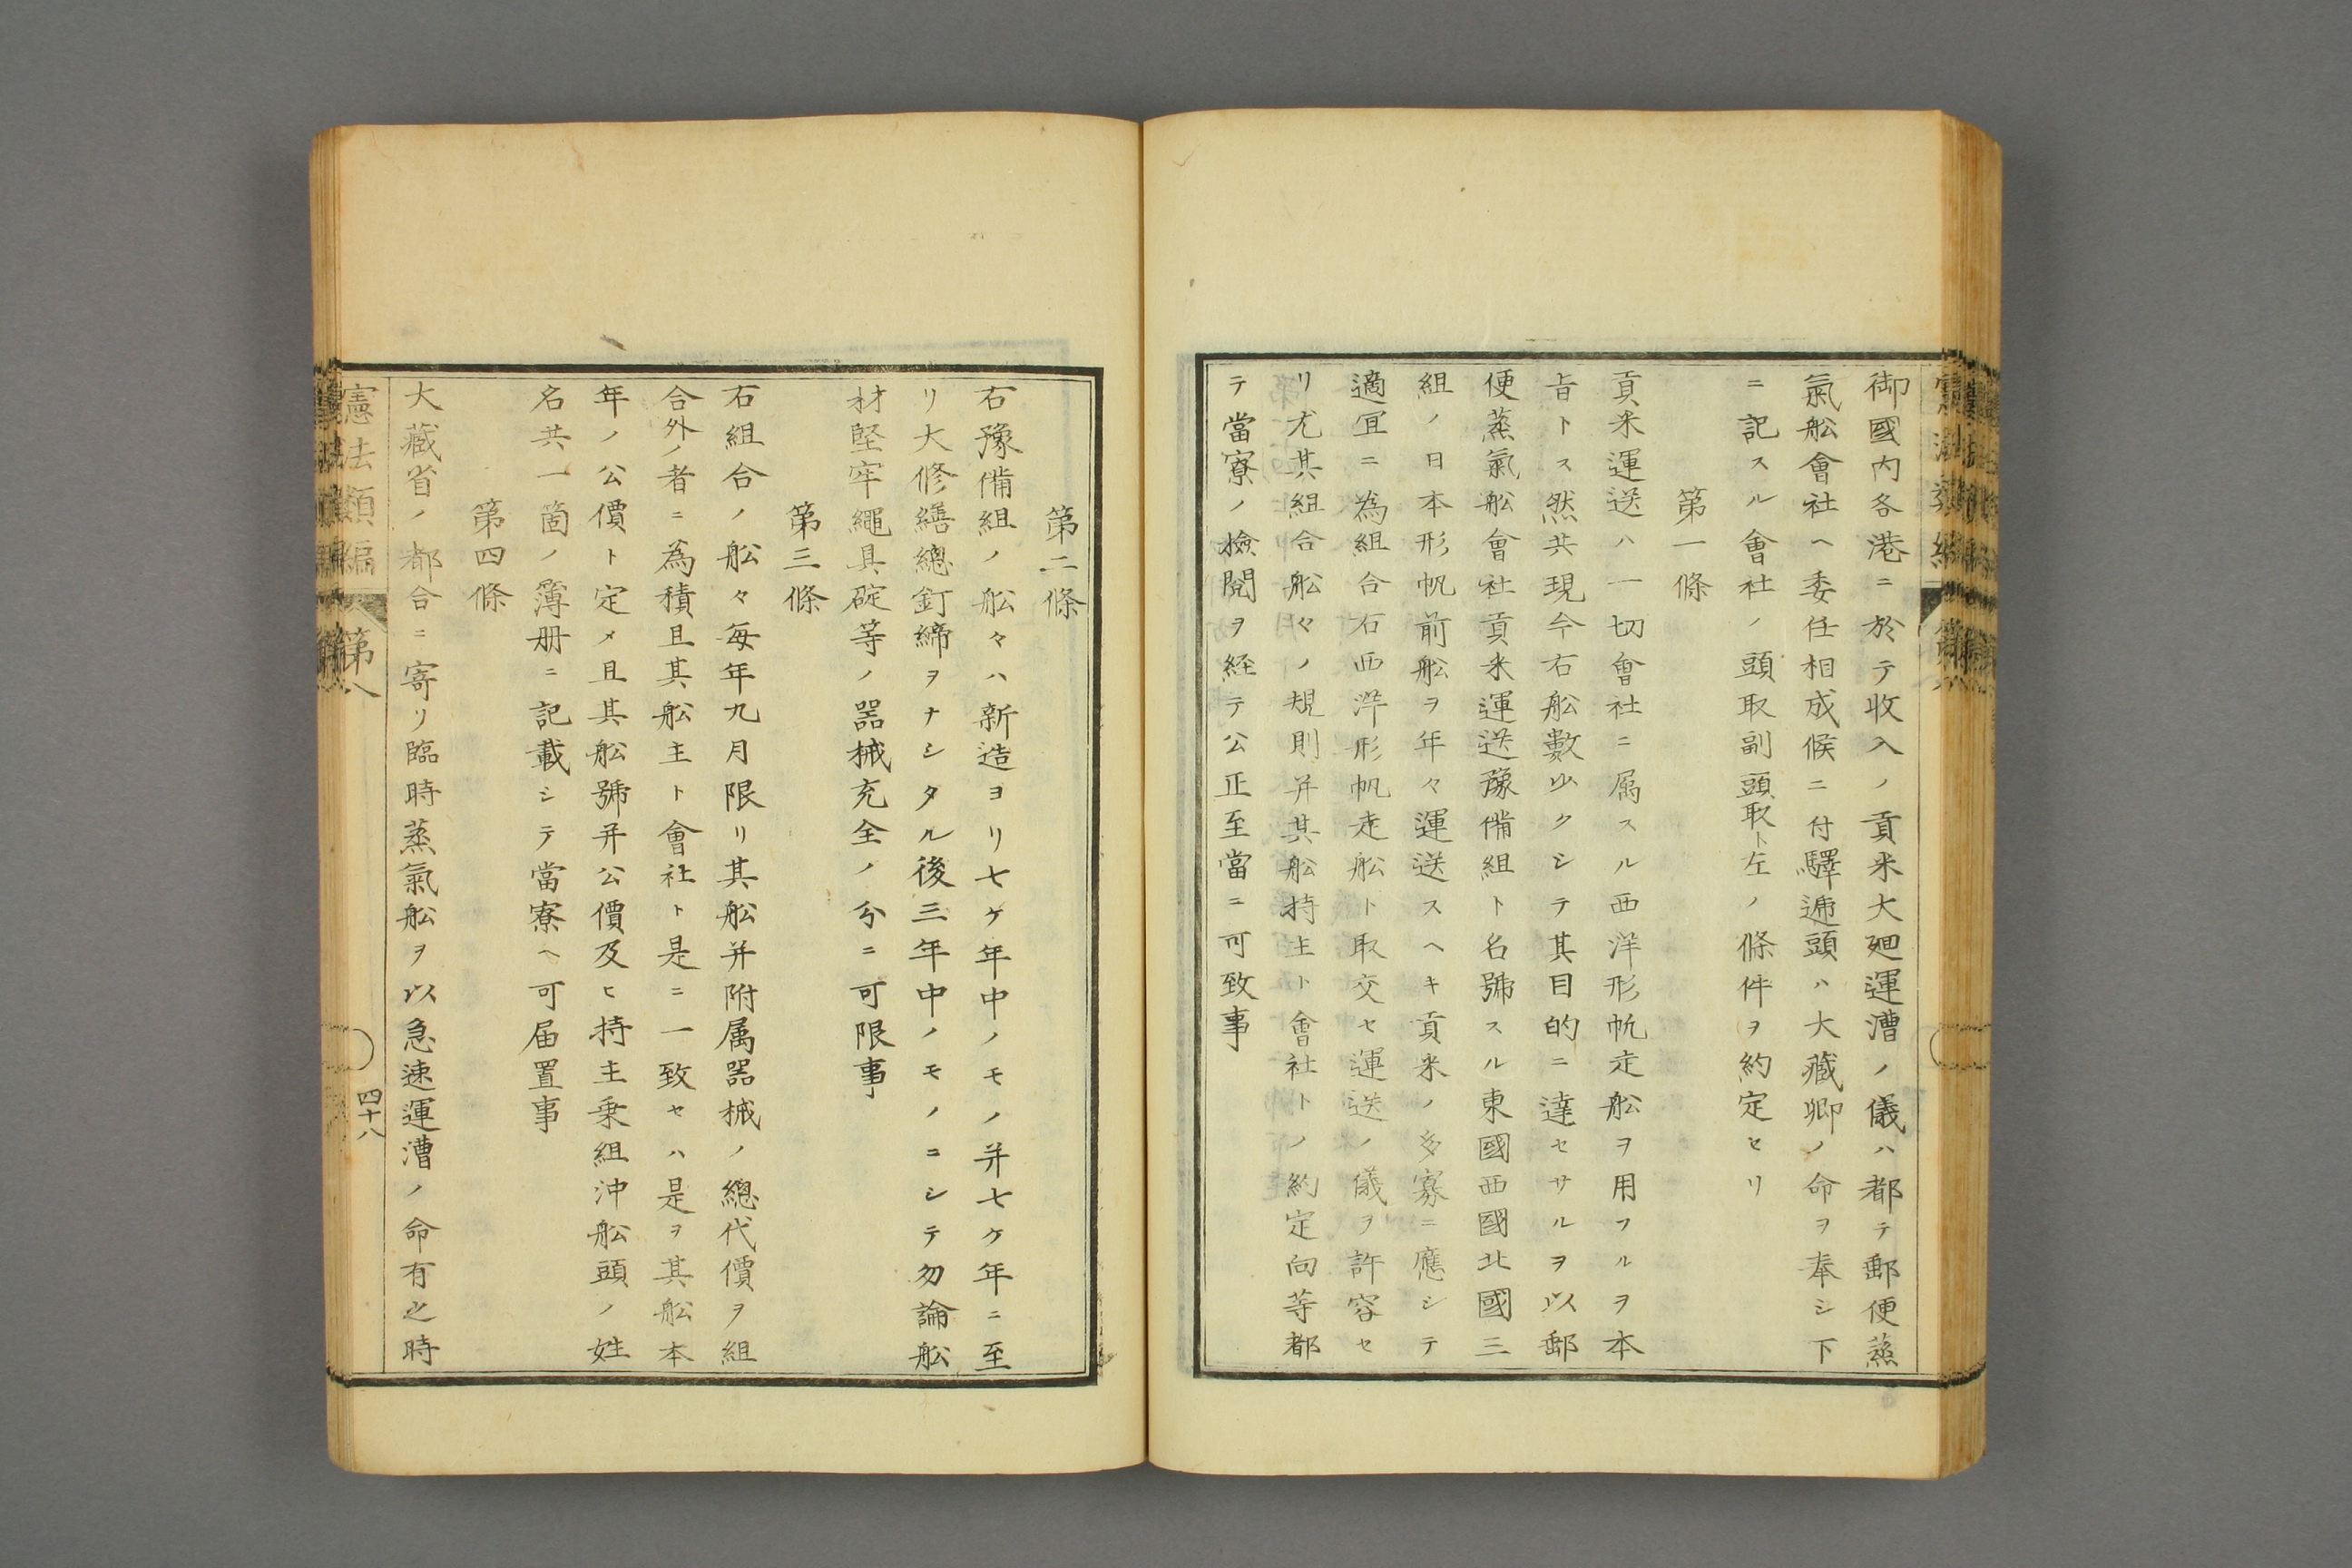 御國内各港ニ於テ收入ノ貢米大廻運漕ノ儀ハ都テ郵便蒸
氣舩會社ヘ委任相成候ニ付驛逓頭ハ大藏卿ノ命ヲ奉シ下
ニ記スル會社ノ頭取副頭取ト左ノ條件ヲ約定セリ
第一條
貢米運送ハ一切會社ニ属スル西洋形帆走舩ヲ用フルヲ本
旨トス然共現今右舩數少クシテ其目的ニ達セサルヲ以郵
便蒸氣舩會社貢米運送豫備組ト名號スル東國西國北國三
組ノ日本形帆前舩ヲ年々運送スヘキ貢米ノ多寡ニ應シテ
適宜ニ為組合右西洋形帆走舩ト取交セ運送ノ儀ヲ許容セ
リ尤其組合舩々ノ規則并其舩持主ト會社トノ約定向等都
テ當寮ノ檢閲ヲ経テ公正至當ニ可致事
第二條
右豫備組ノ舩々ハ新造ヨリ七ケ年中ノモノ并七ケ年ニ至
リ大修繕總釘締ヲナシタル後三年中ノモノニシテ勿論舩
材堅牢繩具碇等ノ器械充全ノ分ニ可限事
第三條
右組合ノ舩々毎年九月限リ其舩并附属器械ノ總代價ヲ組
合外ノ者ニ為積且其舩主ト會社ト是ニ一致セハ是ヲ其舩本
年ノ公價ト定メ且其舩號并公價及ヒ持主乗組沖舩頭ノ姓
名共一箇ノ簿册ニ記載シテ當寮ヘ可届置事
第四條
大藏省ノ都合ニ寄リ臨時蒸氣舩ヲ以急速運漕ノ命有之時
憲法類編 第八
四十八